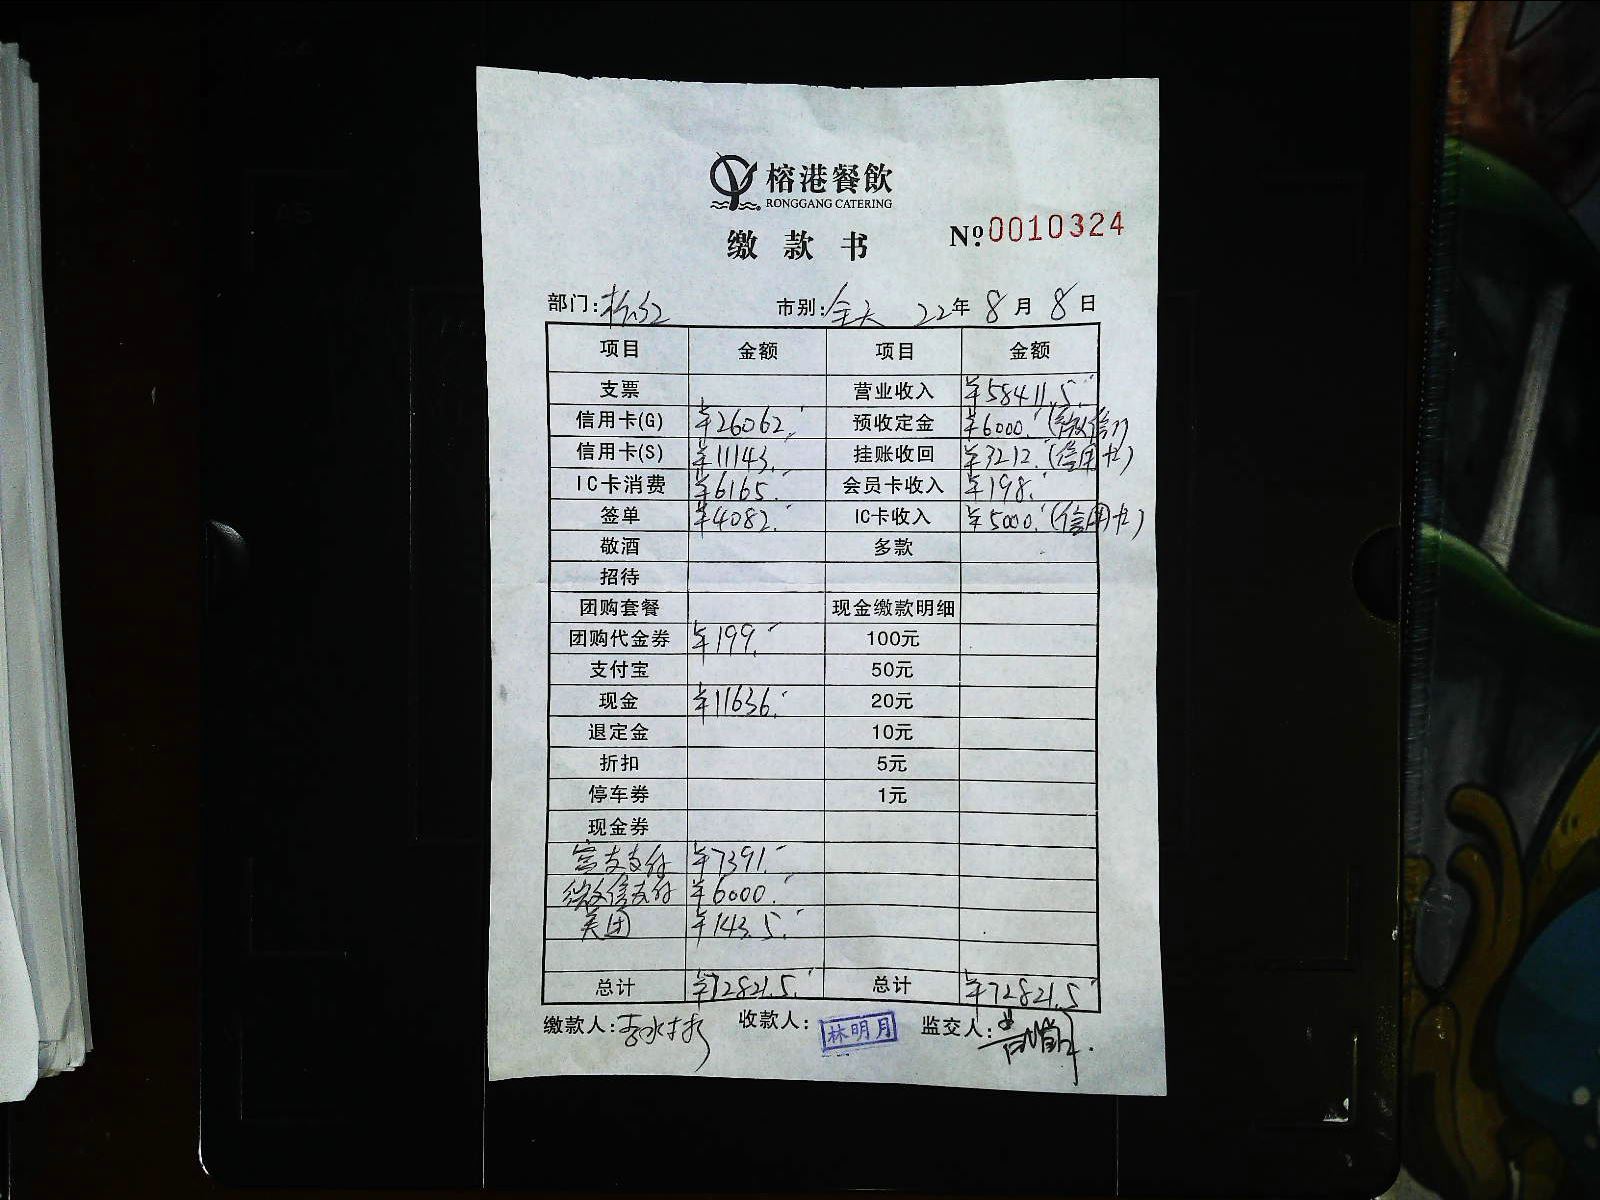 榕港餐飲
RONGGANG CATERING
缴款书 Nº 0010324
部门: 市别:全天 22年 8月 8日
项目 金额 项目 金额
支票 营业收入 ¥58411.5
信用卡(G) ¥26062. 预收定金 ¥6000.(微信)
信用卡(S) ¥11143. 挂账收回 ¥3212.(信用卡)
IC卡消费 ¥6165. 会员卡收入 ¥198.
签单 ¥4082. IC卡收入 ¥5000.(信用卡)
敬酒 多款
招待
团购套餐 现金缴款明细
团购代金券 ¥199. 100元
支付宝 50元
现金 ¥11636. 20元
退定金 10元
折扣 5元
停车券 1元
现金券
支付 ¥7391.
微信支付 ¥6000.
美团 ¥143.5
总计 ¥72821.5 总计 ¥72821.5
缴款人: 收款人:林明月 监交人: